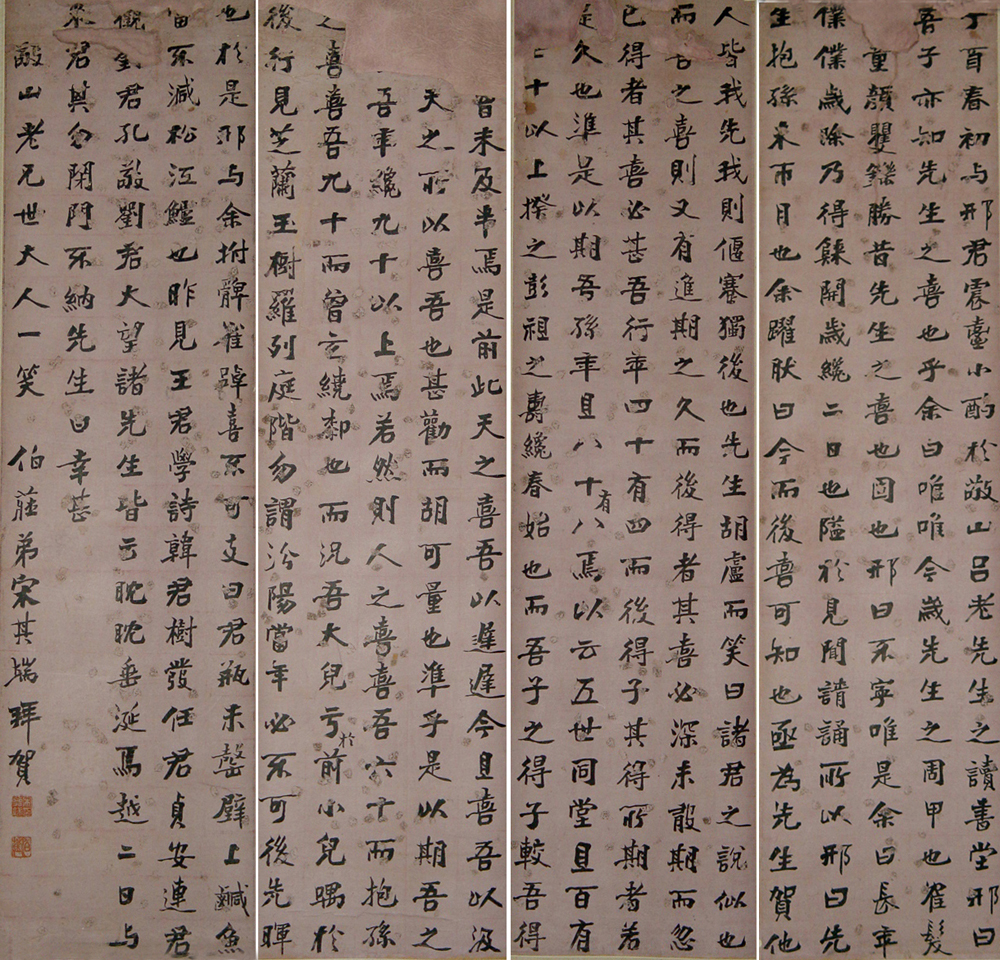 丁酉春初与邢君雲臺小酌於敬山呂老先生之讀書堂邢曰
吾子亦知先生之喜也乎余曰唯唯今歲先生之周甲也寉髮
重顏矍鑠勝昔先生之喜也固也邢曰不寧唯是余曰長年
僕僕歲除乃得閒歲纔二日也隘於見聞請誦所以邢曰先
生抱孫未帀月也余躍肰曰今而後喜可知也亟為先生賀他
人皆我先我則偃蹇獨後也先生胡盧而笑曰諸君之說似也
而吾之喜則又有進期之久而後得者其喜必深未敢期而忽
已得者其喜必甚吾行年四十有四而後得子其得所期者若
是久也準是以期吾孫年且八十有八焉以云五世同堂且百有
二十以上揆之彭祖之壽纔春始也而吾子之得子較吾得
未及半焉是前此天之喜吾以遲遲今且喜吾以汲
天之所以喜吾也甚勸而胡可量也準乎是以期吾之
吾年纔九十以上焉若然則人之喜喜吾六十而抱孫
之喜喜吾九十而曾玄繞厀也而況吾大兒亏於前小兒喁於
後行見芝蘭玉樹羅列庭階勿謂汾陽當年必不可後先暉
也於是邢与余拊髀雀踔喜不可支曰君瓶未罄壁上鹹魚
不減松江鱸也昨見王君學詩韓君樹發任君貞安連君
劉君孔敬劉君大望諸先生皆云眈眈垂涎焉越二日与
君其勿閉門不納先生曰幸甚
敬山老兄世大人一笑 伯莊弟宋其端拜賀